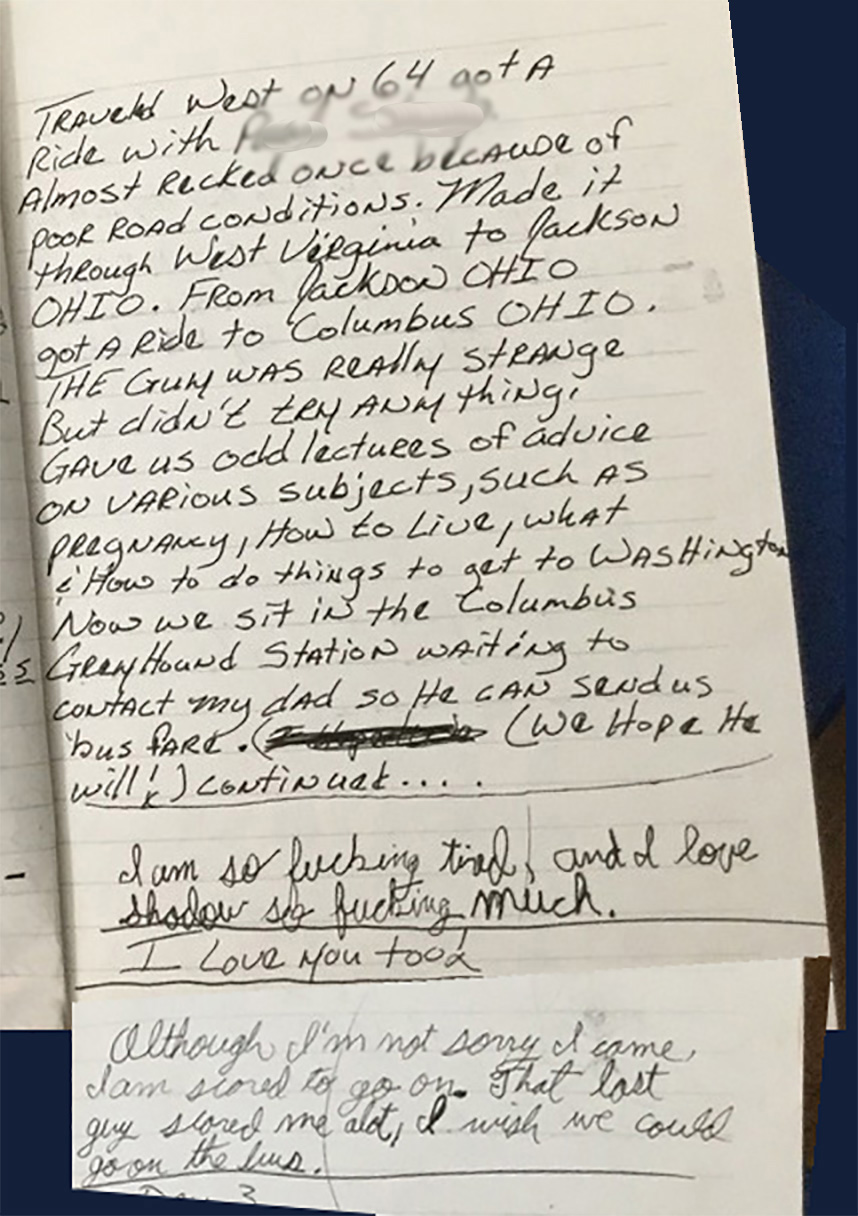 TRAveld West ON 64 got A
Ride with
Almost Recked ONCE because of
POOR ROAD CONDITIONS. Made it
through West Virginia to Jackson
OHIO. FROM Jackson OHIO
got A Ride to Columbus OHIO.
THE Guy WAS REAlly STRANGE
But didn't tRy ANy thing,
GAVE us odd lectures of advice
ON VARIOUS subjects, such AS
PREGNANCY, How to Live, what
& How to do things to get to WASHington
Now we sit in the Columbus
GREyHound STATION WAITING to
CONTACT my dad so He CAN send us
bus FARE. ( (We Hope He
will!) CONTINUED....
I am so fucking tired, and I love
shadow so fucking much.
I Love you too!
Although I'm not sorry I came,
I am scared to go on. That last
guy scared me alot, I wish we could
go on the bus.
Day 3